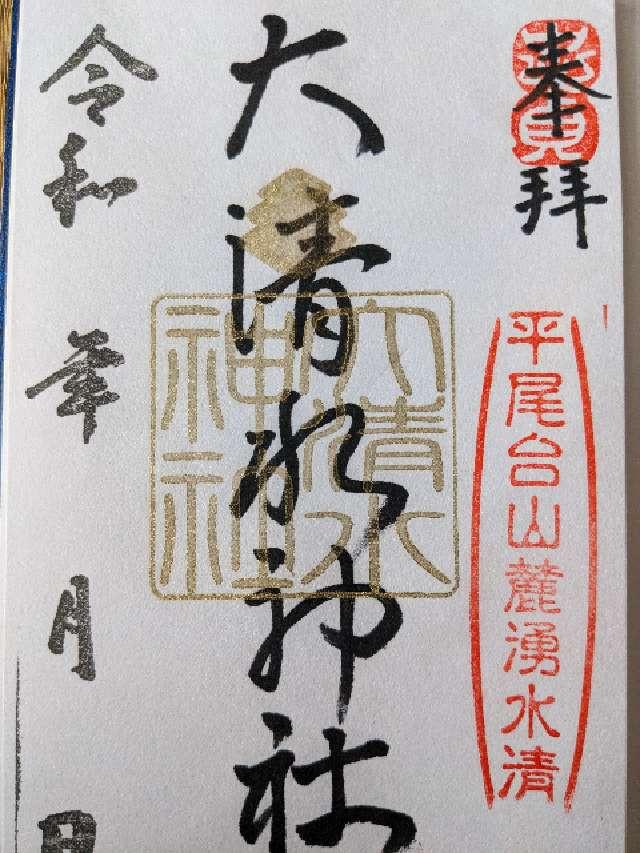 奉拝
平尾台山麓湧水清
大清水神社
大清水
神社
令和 年 月 日